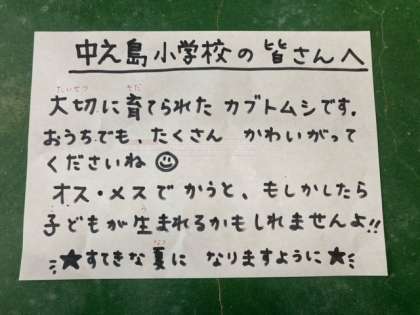 中之島小学校の皆さんへ
大切に育てられたカブトムシです。
おうちでも、たくさん かわいがって
くださいね
オス・メスで かうと、もしかしたら
子どもが生まれるかもしれませんよ!!
★すてきな夏に なりますように★